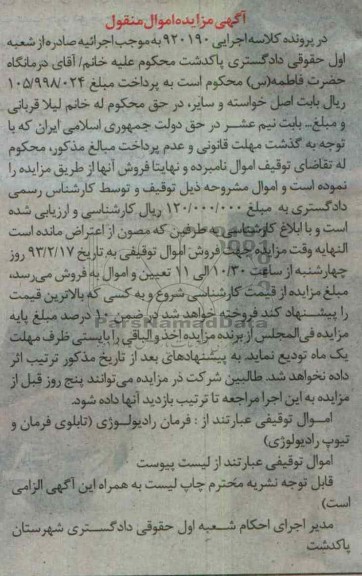 آگهی مزایده اموال منقول
در پرونده کلاسه اجرایی ۹۲۰۱۹۰ به موجب اجرائیه صادره از شعبه
اول حقوقی دادگستری پاکدشت محکوم علیه خانم/ آقای درمانگاه
حضرت فاطمه(س) محکوم است به پرداخت مبلغ ۱۰۵/۹۹۸/۰۲۴
ریال بابت اصل خواسته و سایر، در حق محکوم له خانم لیلا قربانی
و مبلغ... بابت نیم عشر در حق دولت جمهوری اسلامی ایران که با
توجه به گذشت مهلت قانونی و عدم پرداخت مبالغ مذکور، محکوم
له تقاضای توقیف اموال نامبرده و نهایتا فروش آنها از طریق مزایده را
نموده است و اموال مشروحه ذیل توقیف و توسط کارشناس رسمی
دادگستری به مبلغ ۱۲۰/۰۰۰/۰۰۰ ریال کارشناسی و ارزیابی شده
است و با ابلاغ کارشناسی به طرفین که مصون از اعتراض مانده است
النهایه وقت مزایده جهت فروش اموال توقیفی به تاریخ ۹۳/۲/۱۷ روز
چهارشنبه از ساعت ۱۰/۳۰ الی ۱۱ تعیین و اموال به فروش می‌رسد،
مبلغ مزایده از قیمت کارشناسی شروع و به کسی که بالاترین قیمت
را پیشنهاد کند فروخته خواهد شد در ضمن ۱۰ درصد مبلغ پایه
مزایده فی‌المجلس از برنده مزایده اخذ والباقی را بایستی ظرف مهلت
یک ماه تودیع نماید. به پیشنهادهای بعد از تاریخ مذکور ترتیب اثر
داده نخواهد شد. طالبین شرکت در مزایده می‌توانند پنج روز قبل از
مزایده به این اجرا مراجعه تا ترتیب بازدید آنها داده شود.
اموال توقیفی عبارتند از : فرمان رادیولوژی (تابلوی فرمان و
تیوپ رادیولوژی)
اموال توقیفی عبارتند از لیست پیوست
قابل توجه نشریه محترم چاپ لیست به همراه این آگهی الزامی
است)
مدیر اجرای احکام شعبه اول حقوقی دادگستری شهرستان
پاکدشت
ParsNamadData